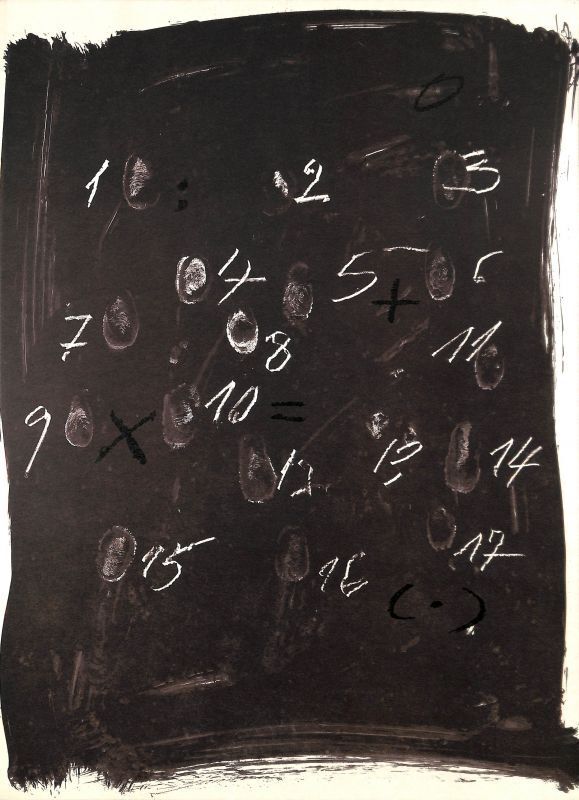 0
1 : 2 3
4 5 + 6
7 8 11
9 × 10 =
12 13 14
15 16 17
(·)